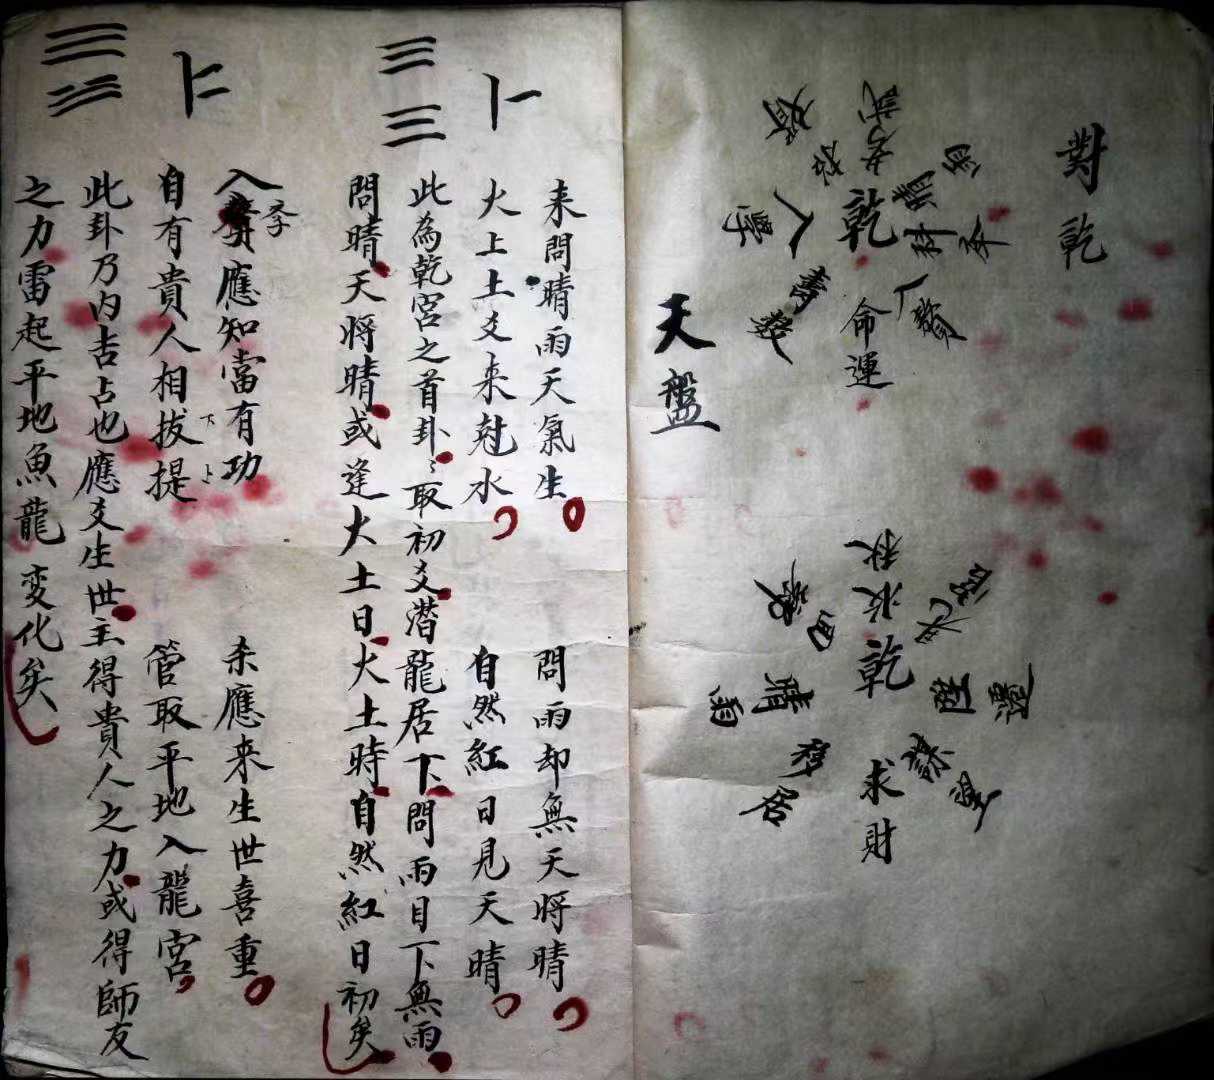 對乾
乾
考試
科年
人贅
命運
壽數
入學
天盤
乾
求財
謀望
移居
晴雨
來問晴雨天氣生
問雨却無天將晴
火上土爻來尅水
自然紅日見天晴
此為乾宮之首卦〻取初爻潛龍居下問雨目下無雨
問晴天將晴或逢火土日火土時自然紅日初矣
應知當有功
來應來生世喜重
自有貴人相拔提
管取平地入龍宮
下
上
此卦乃內吉占也應爻生世主得貴人之力或得師友
之力雷起平地魚龍变化矣